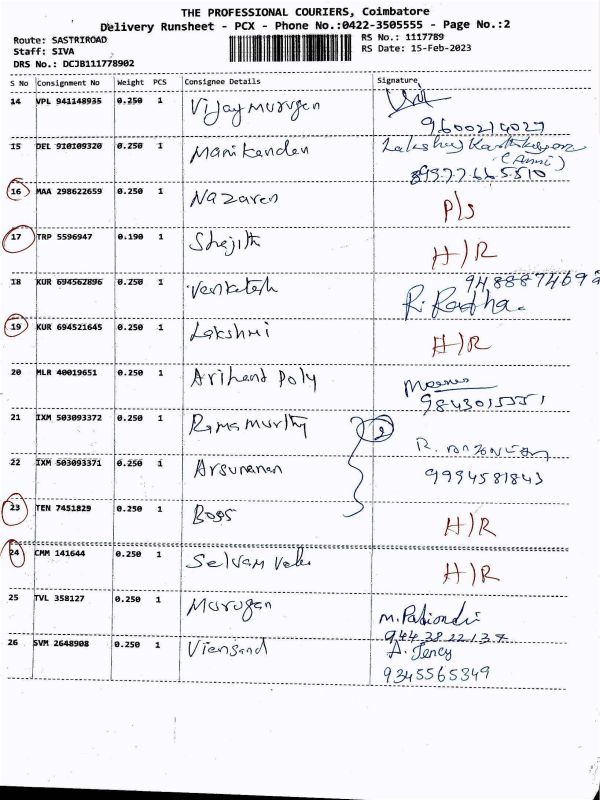 THE PROFESSIONAL COURIERS, Coimbatore
Delivery Runsheet - PCX - Phone No.:0422-3505555 - Page No.:2
Route: SASTRIROAD RS No.: 1117789
Staff: SIVA RS Date: 15-Feb-2023
DRS No.: DCJB111778902
S No Consignment No Weight PCS Consignee Details Signature
14 VPL 941148935 0.250 1 Vijay Murugen
9600214027
15 DEL 910109320 0.250 1 Manikandan
(Anni)
16 MAA 298622659 0.250 1 Nazaren P/S
17 TRP 5596947 0.190 1 Shajith H/R
18 KUR 694562896 0.250 1 Venkatesh
R. Radha.
19 KUR 694521645 0.250 1 Lakshmi H/R
20 MLR 40019651 0.250 1 Arihant Poly
21 IXM 503093372 0.250 1 Ramamurthy 2
22 IXM 503093371 0.250 1 Arsunanan
9994581843
23 TEN 7451829 0.250 1 Boss H/R
24 CMM 141644 0.250 1 Selvam H/R
25 TVL 358127 0.250 1 Murugan
26 SVM 2648908 0.250 1 A. Jency
9345565349